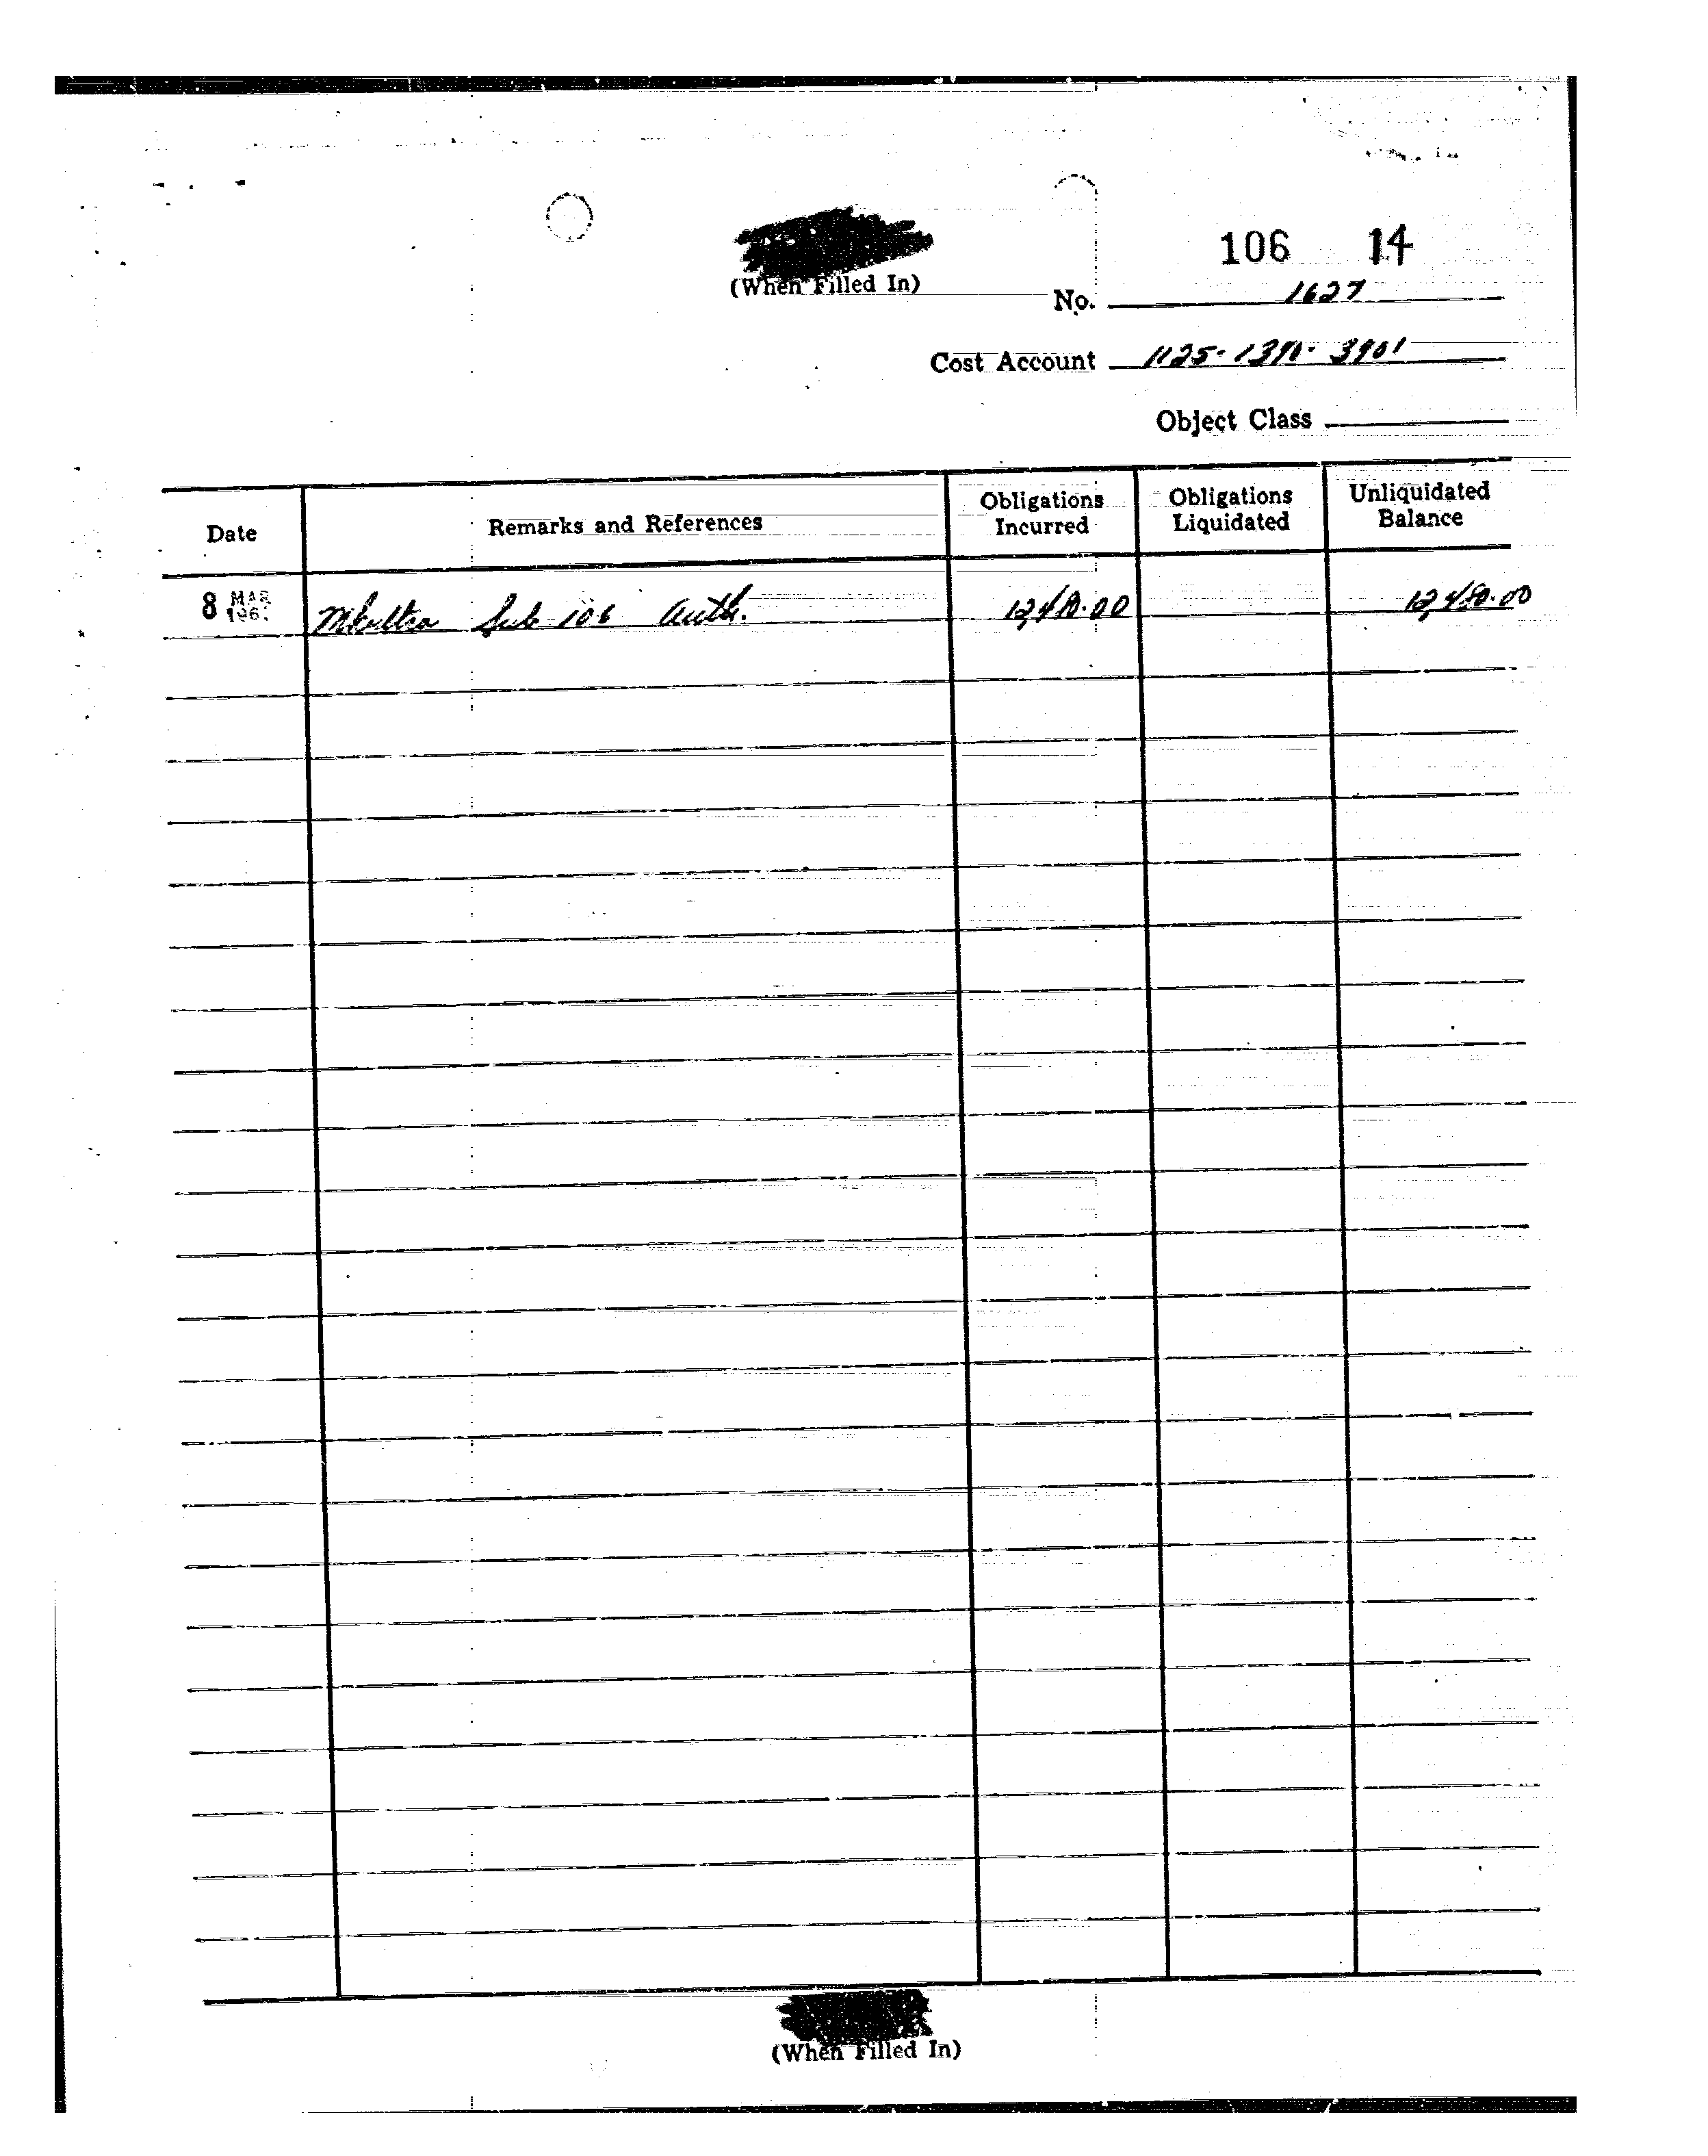 106 14
(When Filled In)
No. 1627
Cost Account 1125-1390-3901
Object Class
Date
Remarks and References
Obligations Incurred
Obligations Liquidated
Unliquidated Balance
8 MAR
Mkultra Sub 106 Auth.
12,480.00
12,480.00
(When Filled In)